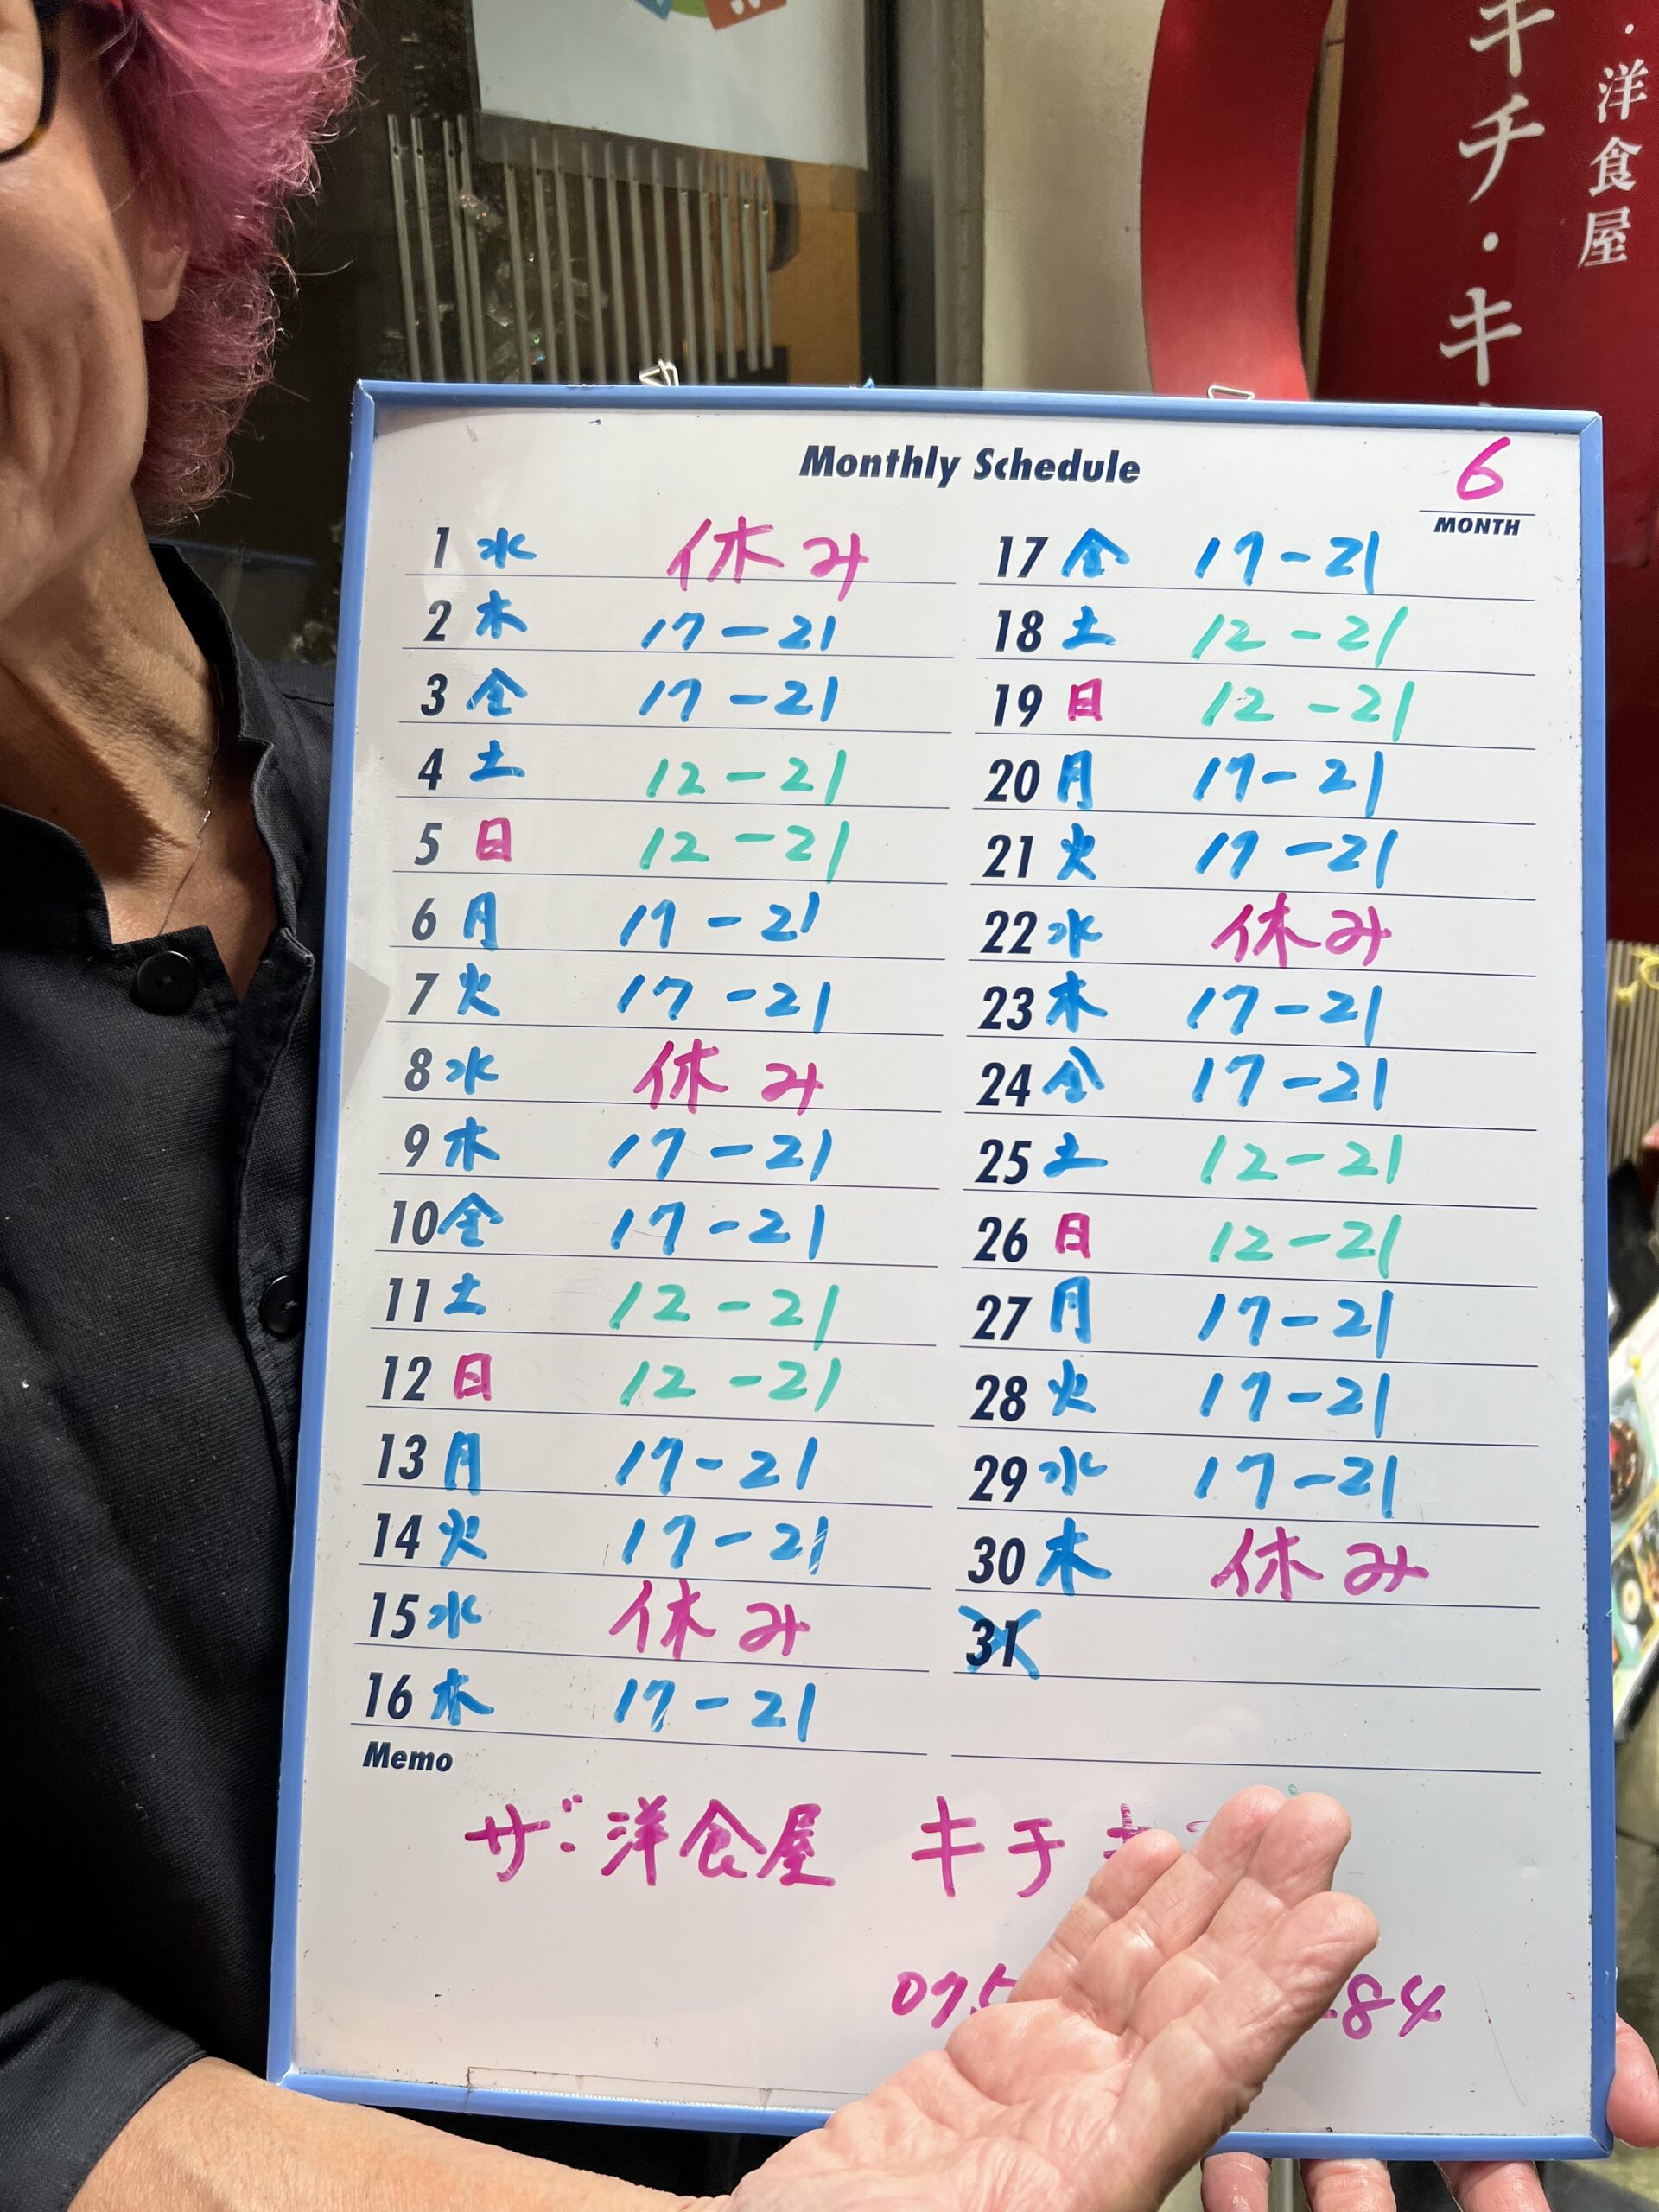 ・洋食屋
キチ・キ
Monthly Schedule
6
MONTH
1 水 休み
2 木 17-21
3 金 17-21
4 土 12-21
5 日 12-21
6 月 17-21
7 火 17-21
8 水 休み
9 木 17-21
10 金 17-21
11 土 12-21
12 日 12-21
13 月 17-21
14 火 17-21
15 水 休み
16 木 17-21
17 金 17-21
18 土 12-21
19 日 12-21
20 月 17-21
21 火 17-21
22 水 休み
23 木 17-21
24 金 17-21
25 土 12-21
26 日 12-21
27 月 17-21
28 火 17-21
29 水 17-21
30 木 休み
31
Memo
ザ・洋食屋 キチ キ
075 84